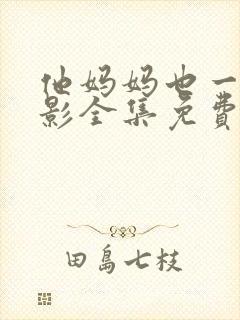 他妈妈也一
影全集免费
田島七枝